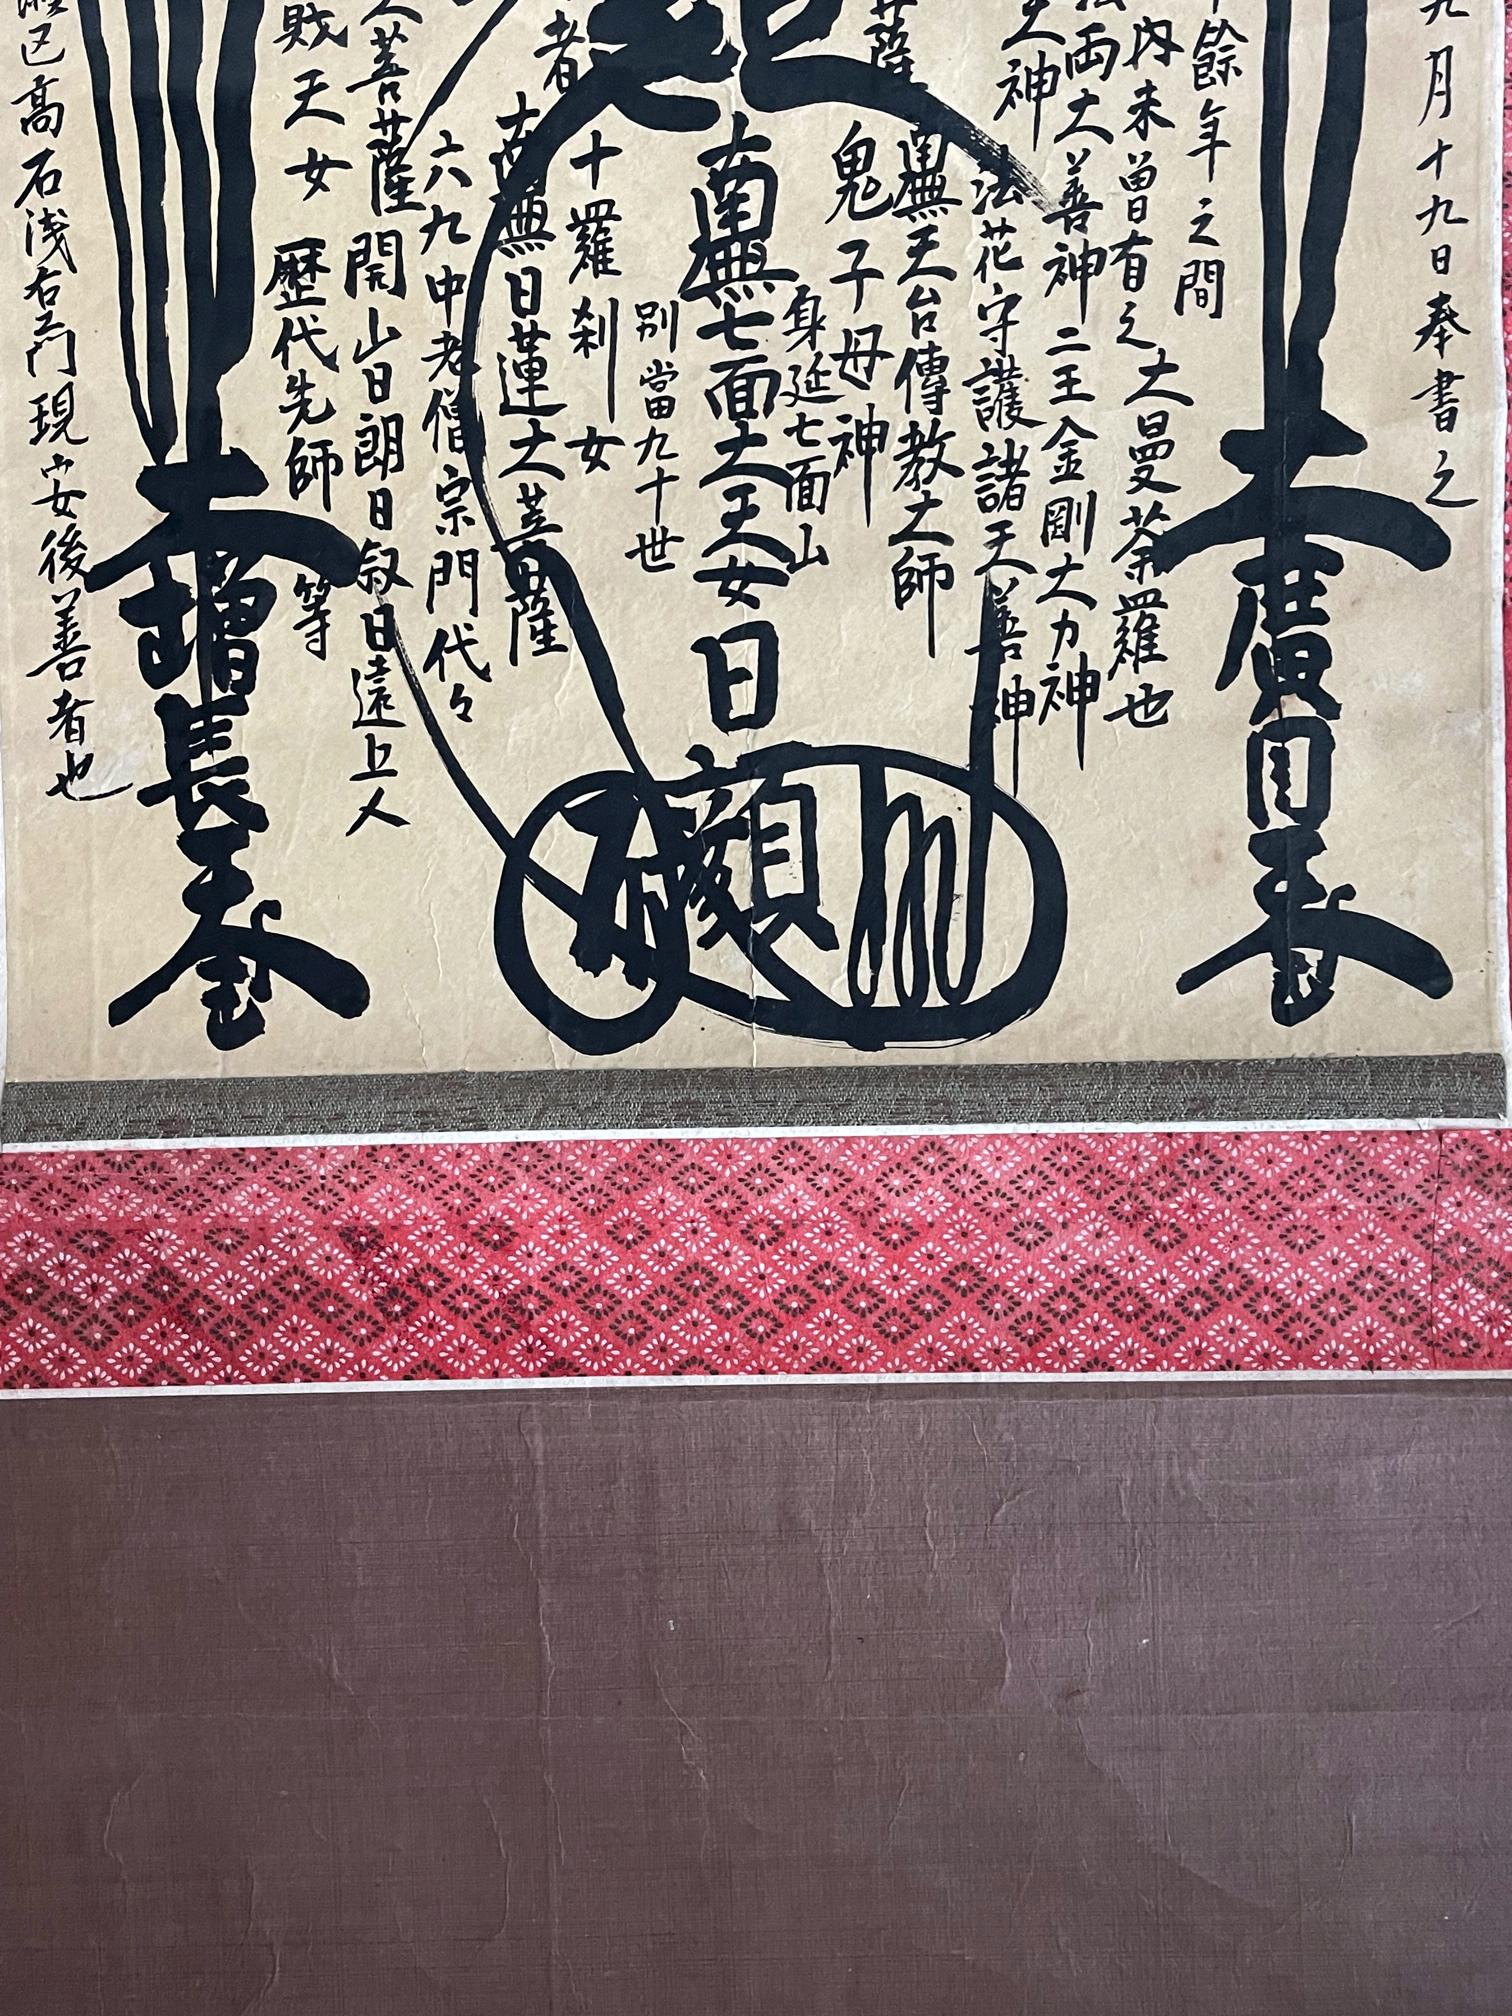 九月十九日奉書之
大廣目天王
餘年之間
内未曽有之大曼荼羅也
両大善神二王金剛大力神
天神
法花守護諸天善神
菩薩
南無天台傳教大師
鬼子母神
身延七面山
南無七面大天女
日顗
別當九十世
者
十羅刹女
南無日蓮大菩薩
六九中老僧宗門代々
菩薩開山日朗日叙日遠上人
賊天女歴代先師等
大增長天王
区高石浅右ヱ門現安後善者也